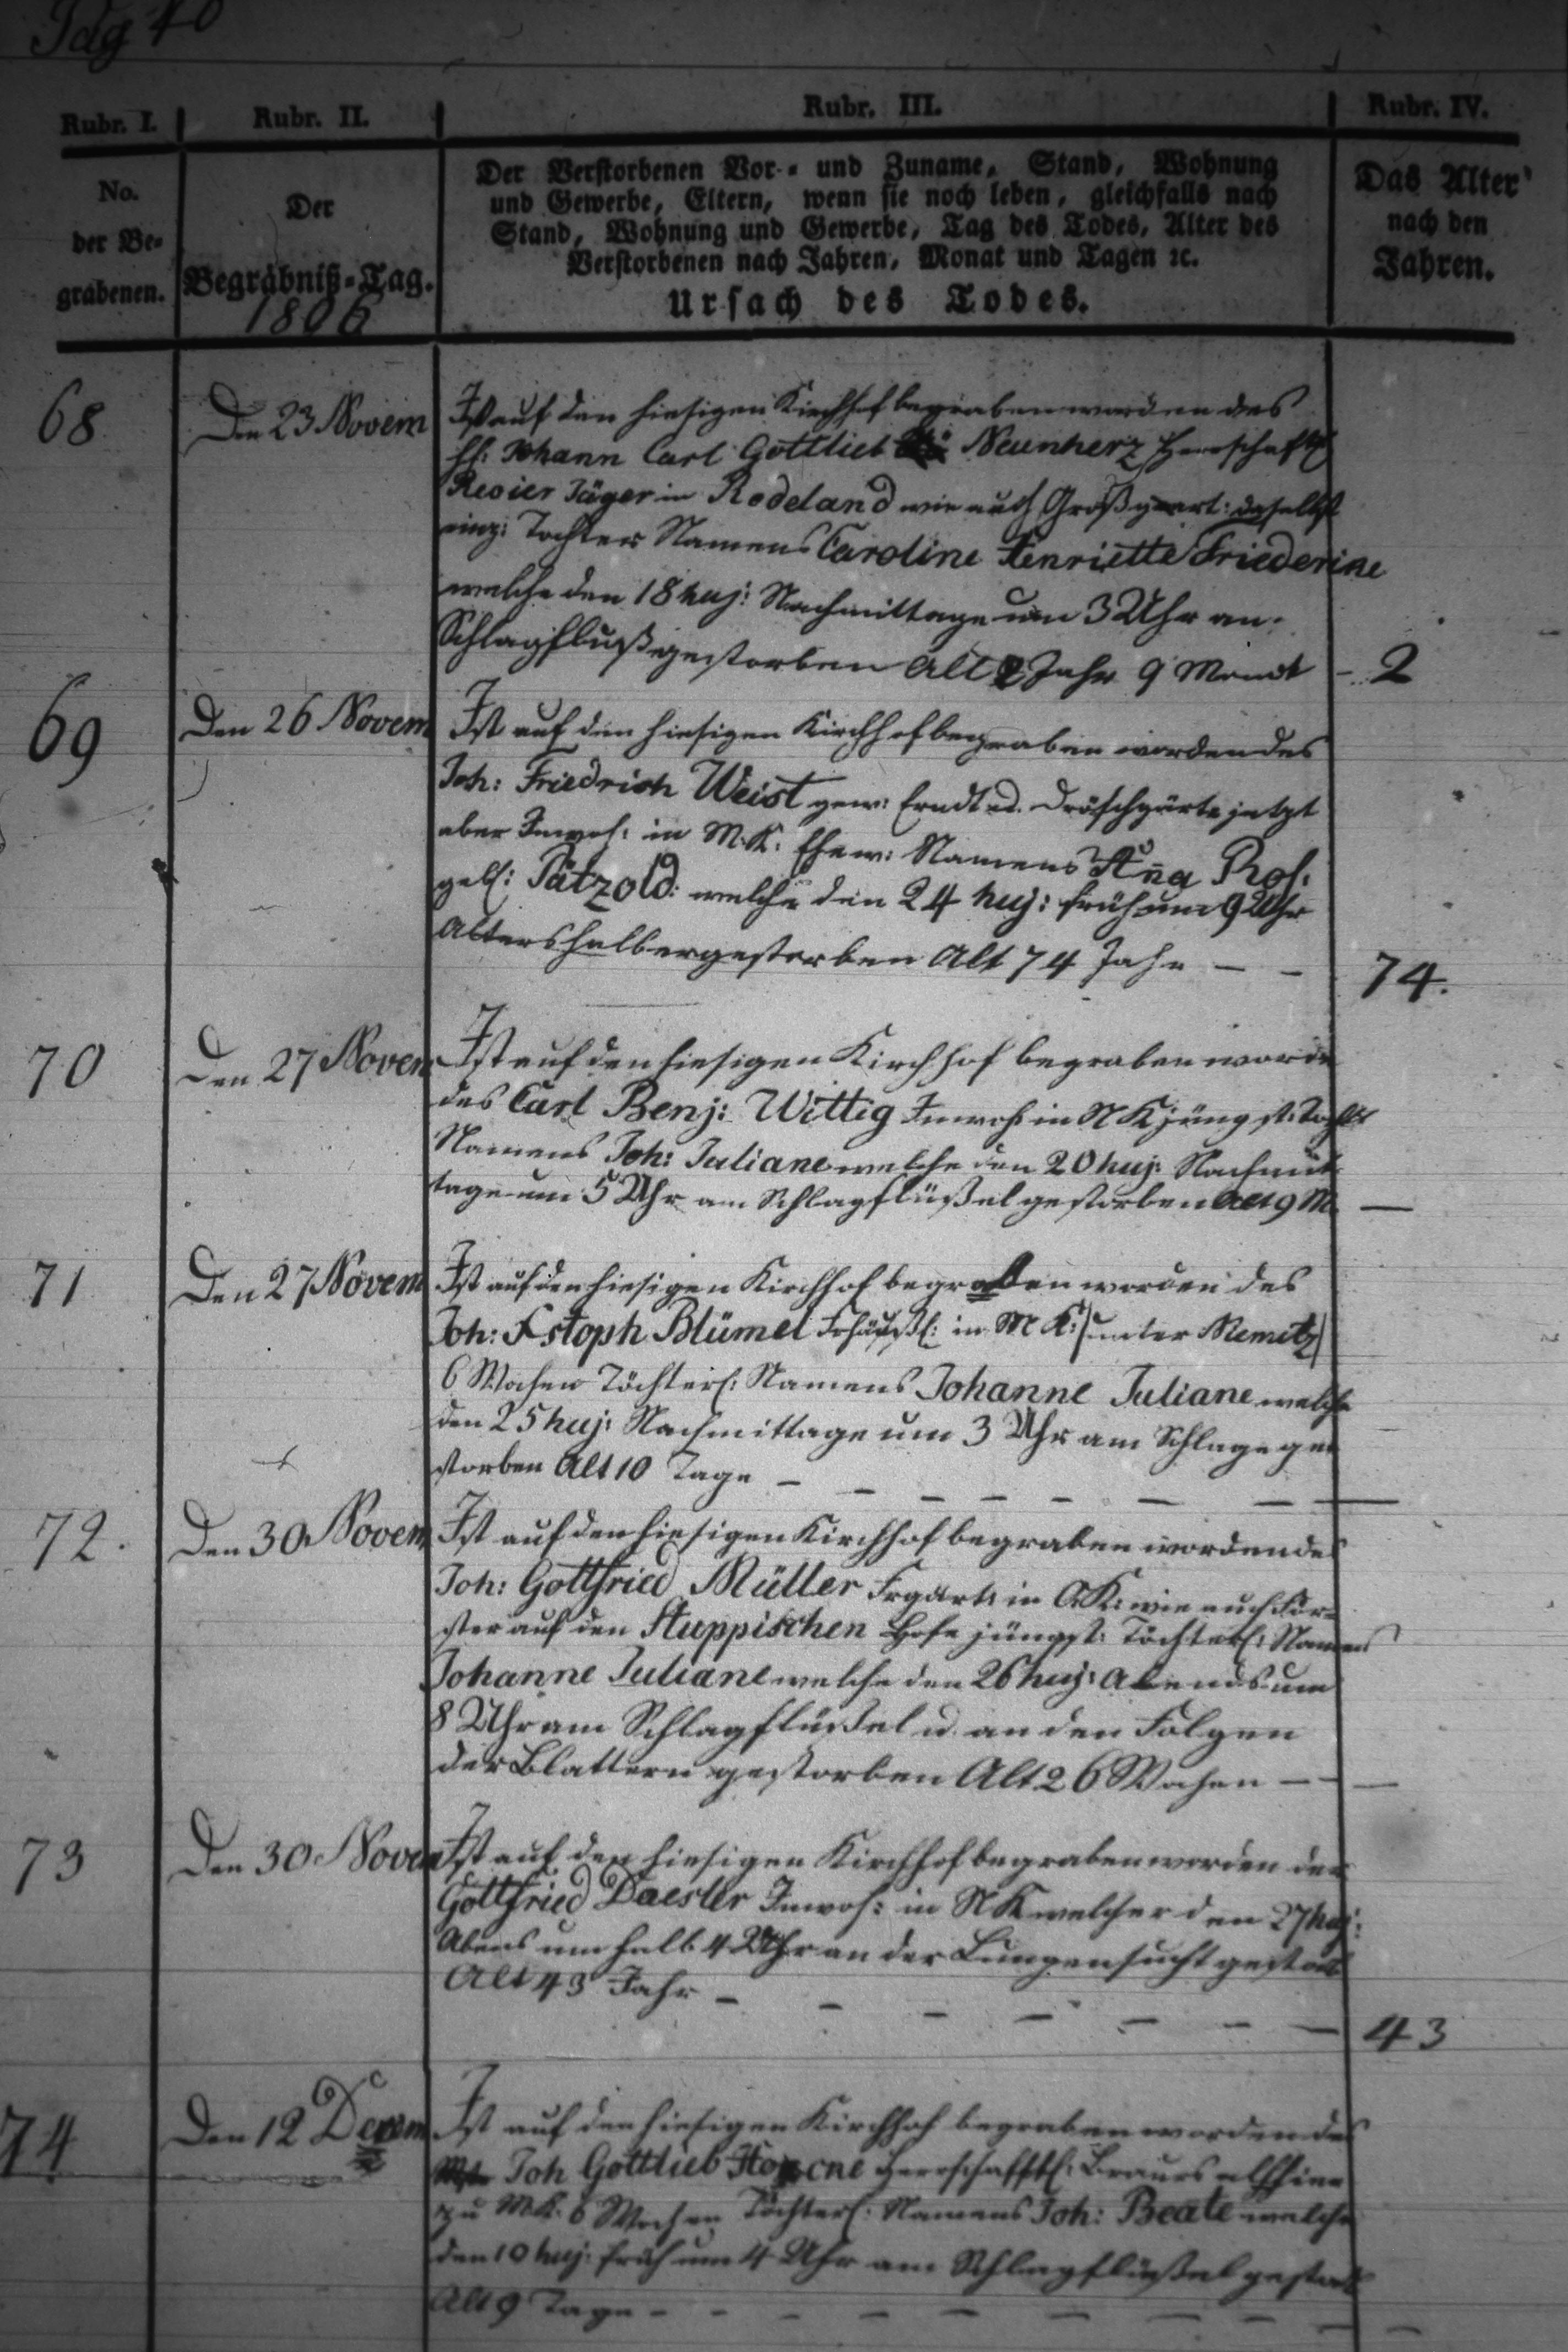 Pag 40
Rubr. I. Rubr. II. Rubr. III. Rubr. IV.
No. der Be- grabenen.
Der Begräbniß-Tag.
1806
Der Verstorbenen Vor- und Zuname, Stand, Wohnung
und Gewerbe, Eltern, wenn sie noch leben, gleichfalls nach
Stand, Wohnung und Gewerbe, Tag des Todes, Alter des
Verstorbenen nach Jahren, Monat und Tagen ꝛc.
Ursach des Todes.
Das Alter
nach den
Jahren.
68 Den 23 Novem Ist auf den hiesigen Kirchhof begraben worden des
H: Johann Carl Gottlieb Neunherz Herrschaftl
Revier Jäger in Rodeland wie auch Großgärt: daselbst
einz: Tochter Namens Caroline Henriette Friederine
welche den 18 huj: Nachmittage um 3 Uhr am
Schlagfluß gestorben Alt 2 Jahr 9 Mondt - 2
69 Den 26 Novem Ist auf den hiesigen Kirchhof begraben worden des
Joh: Friedrich Weist gew: Erndt u. Dröschgärt jetzt
aber Inwoh: in M.K: Ehew: Namens Aña Ros:
geb: Pätzold: welche den 24 huj: früh um 9 Uhr
Altershalber gestorben Alt 74 Jahr - - 74.
70 Den 27 Novem Ist auf den hiesigen Kirchhof begraben worde
des Carl Benj: Wittig Inwoh in N K jüngst: Tochter
Namens Joh: Juliane welche den 20 huj: Nachmit
tage um 5 Uhr am Schlagflüßel gestorben Alt 9 M. —
71 Den 27 Novem Ist auf den hiesigen Kirchhof begraben worden des
Joh: Xstoph Blümel Frhäußl: in M K: /unter Nemitz/
6 Wochen Töchterl: Namens Johanne Juliane welche
den 25 huj: Nachmittage um 3 Uhr am Schlage ge
storben Alt 10 Tage - - - - - - - —
72. Den 30 Novem Ist auf den hiesigen Kirchhof begraben worden des
Joh: Gottfried Müller Frgärt: in O.K: wie auch För-
ster auf den Stuppischen Hofe jüngst: Töchterl: Namens
Johanne Juliane welche den 26 huj: Abends um
8 Uhr am Schlagflüßel u. an den Folgen
der Blattern gestorben Alt 26 Wochen - - —
73 Den 30 Novem Ist auf den hiesigen Kirchhof begraben worden der
Gottfried Daesler Inwoh: in N K welcher den 27 huj:
Abens um halb 4 Uhr an der Lungensucht gestorb
Alt 43 Jahr - - - - - - - 43
74 Den 12 Decem Ist auf den hiesigen Kirchhof begraben worden des
Joh Gottlieb Herrschafftl: Brauers
zu MK. 6 Wochen Töchterl: Namens Joh: Beate welche
den 10 huj: früh um 4 Uhr am Schlagflüßel gestorb
Alt 9 Tage - - - - - - - -